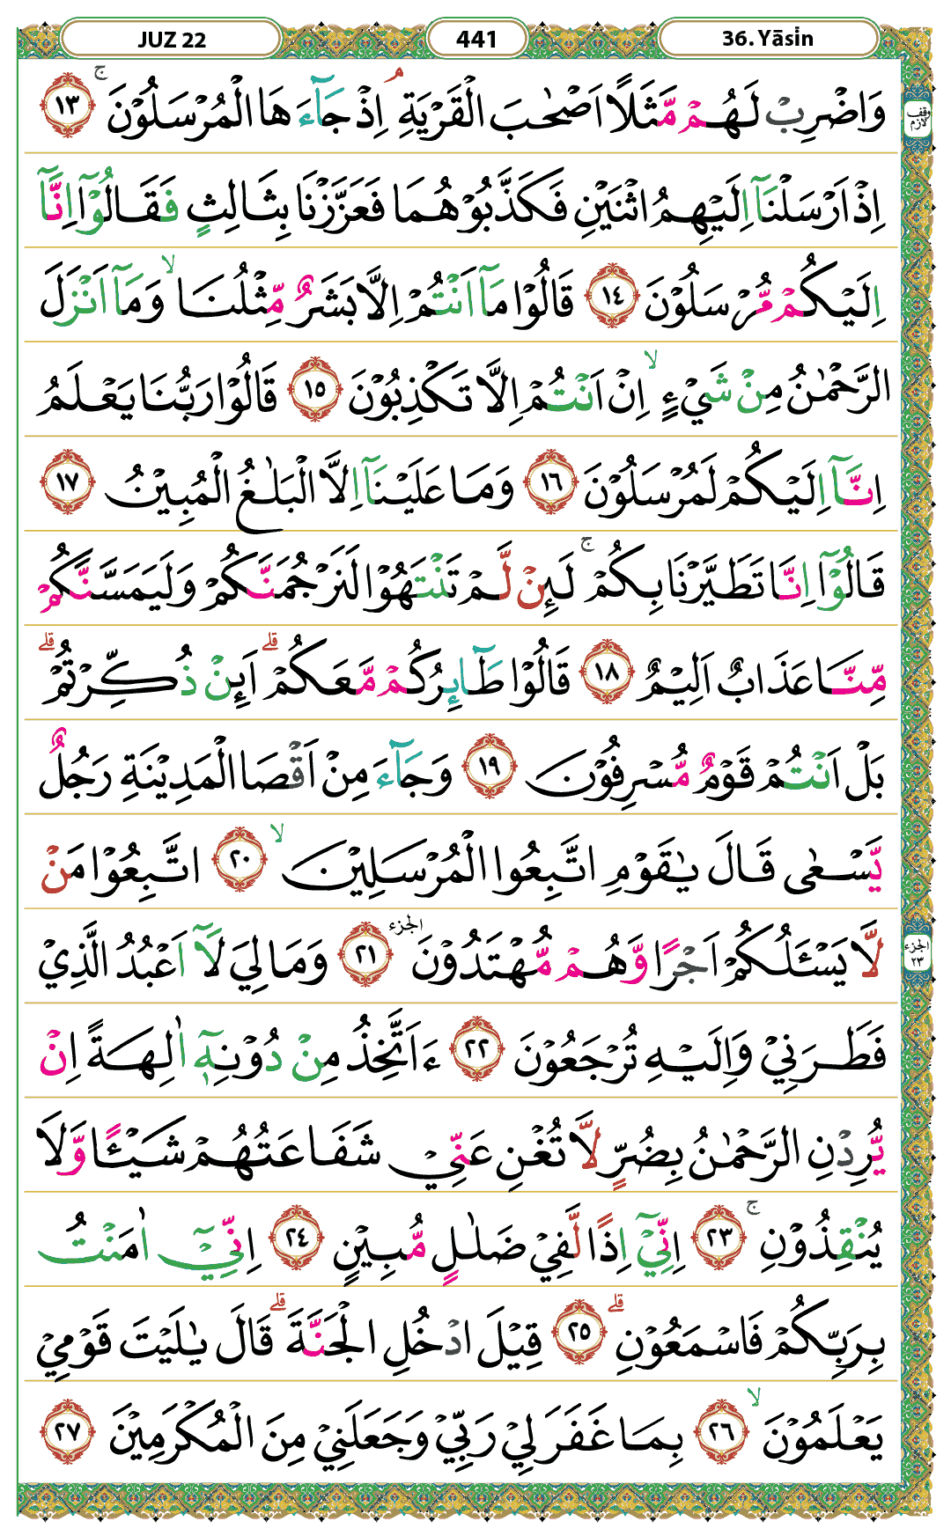 JUZ 22
441
36. Yāsin
وَاضْرِبْ لَهُمْ مَّثَلًا اَصْحٰبَ الْقَرْيَةِ ۘ اِذْ جَآءَهَا الْمُرْسَلُوْنَ ۚ ١٣
وقف لازم
اِذْ اَرْسَلْنَآ اِلَيْهِمُ اثْنَيْنِ فَكَذَّبُوْهُمَا فَعَزَّزْنَا بِثَالِثٍ فَقَالُوْٓا اِنَّآ
اِلَيْكُمْ مُّرْسَلُوْنَ ١٤ قَالُوْا مَآ اَنْتُمْ اِلَّا بَشَرٌ مِّثْلُنَا ۙ وَمَآ اَنْزَلَ
الرَّحْمٰنُ مِنْ شَيْءٍ ۙ اِنْ اَنْتُمْ اِلَّا تَكْذِبُوْنَ ١٥ قَالُوْا رَبُّنَا يَعْلَمُ
اِنَّآ اِلَيْكُمْ لَمُرْسَلُوْنَ ١٦ وَمَا عَلَيْنَآ اِلَّا الْبَلٰغُ الْمُبِيْنُ ١٧
قَالُوْٓا اِنَّا تَطَيَّرْنَا بِكُمْ ۚ لَىِٕنْ لَّمْ تَنْتَهُوْا لَنَرْجُمَنَّكُمْ وَلَيَمَسَّنَّكُمْ
مِّنَّا عَذَابٌ اَلِيْمٌ ١٨ قَالُوْا طَآىِٕرُكُمْ مَّعَكُمْ ۗ اَىِٕنْ ذُكِّرْتُمْ ۗ
بَلْ اَنْتُمْ قَوْمٌ مُّسْرِفُوْنَ ١٩ وَجَآءَ مِنْ اَقْصَا الْمَدِيْنَةِ رَجُلٌ
يَّسْعٰى قَالَ يٰقَوْمِ اتَّبِعُوا الْمُرْسَلِيْنَ ۙ ٢٠ اتَّبِعُوْا مَنْ
لَّا يَسْـَٔلُكُمْ اَجْرًا وَّهُمْ مُّهْتَدُوْنَ الجزء ٢١ وَمَا لِيَ لَآ اَعْبُدُ الَّذِيْ
الجزء ٢٣
فَطَرَنِيْ وَاِلَيْهِ تُرْجَعُوْنَ ٢٢ ءَاَتَّخِذُ مِنْ دُوْنِهٖٓ اٰلِهَةً اِنْ
يُّرِدْنِ الرَّحْمٰنُ بِضُرٍّ لَّا تُغْنِ عَنِّيْ شَفَاعَتُهُمْ شَيْـًٔا وَّلَا
يُنْقِذُوْنِ ۚ ٢٣ اِنِّيْٓ اِذًا لَّفِيْ ضَلٰلٍ مُّبِيْنٍ ٢٤ اِنِّيْٓ اٰمَنْتُ
بِرَبِّكُمْ فَاسْمَعُوْنِ ۗ ٢٥ قِيْلَ ادْخُلِ الْجَنَّةَ ۗ قَالَ يٰلَيْتَ قَوْمِيْ
يَعْلَمُوْنَ ۙ ٢٦ بِمَا غَفَرَ لِيْ رَبِّيْ وَجَعَلَنِيْ مِنَ الْمُكْرَمِيْنَ ٢٧